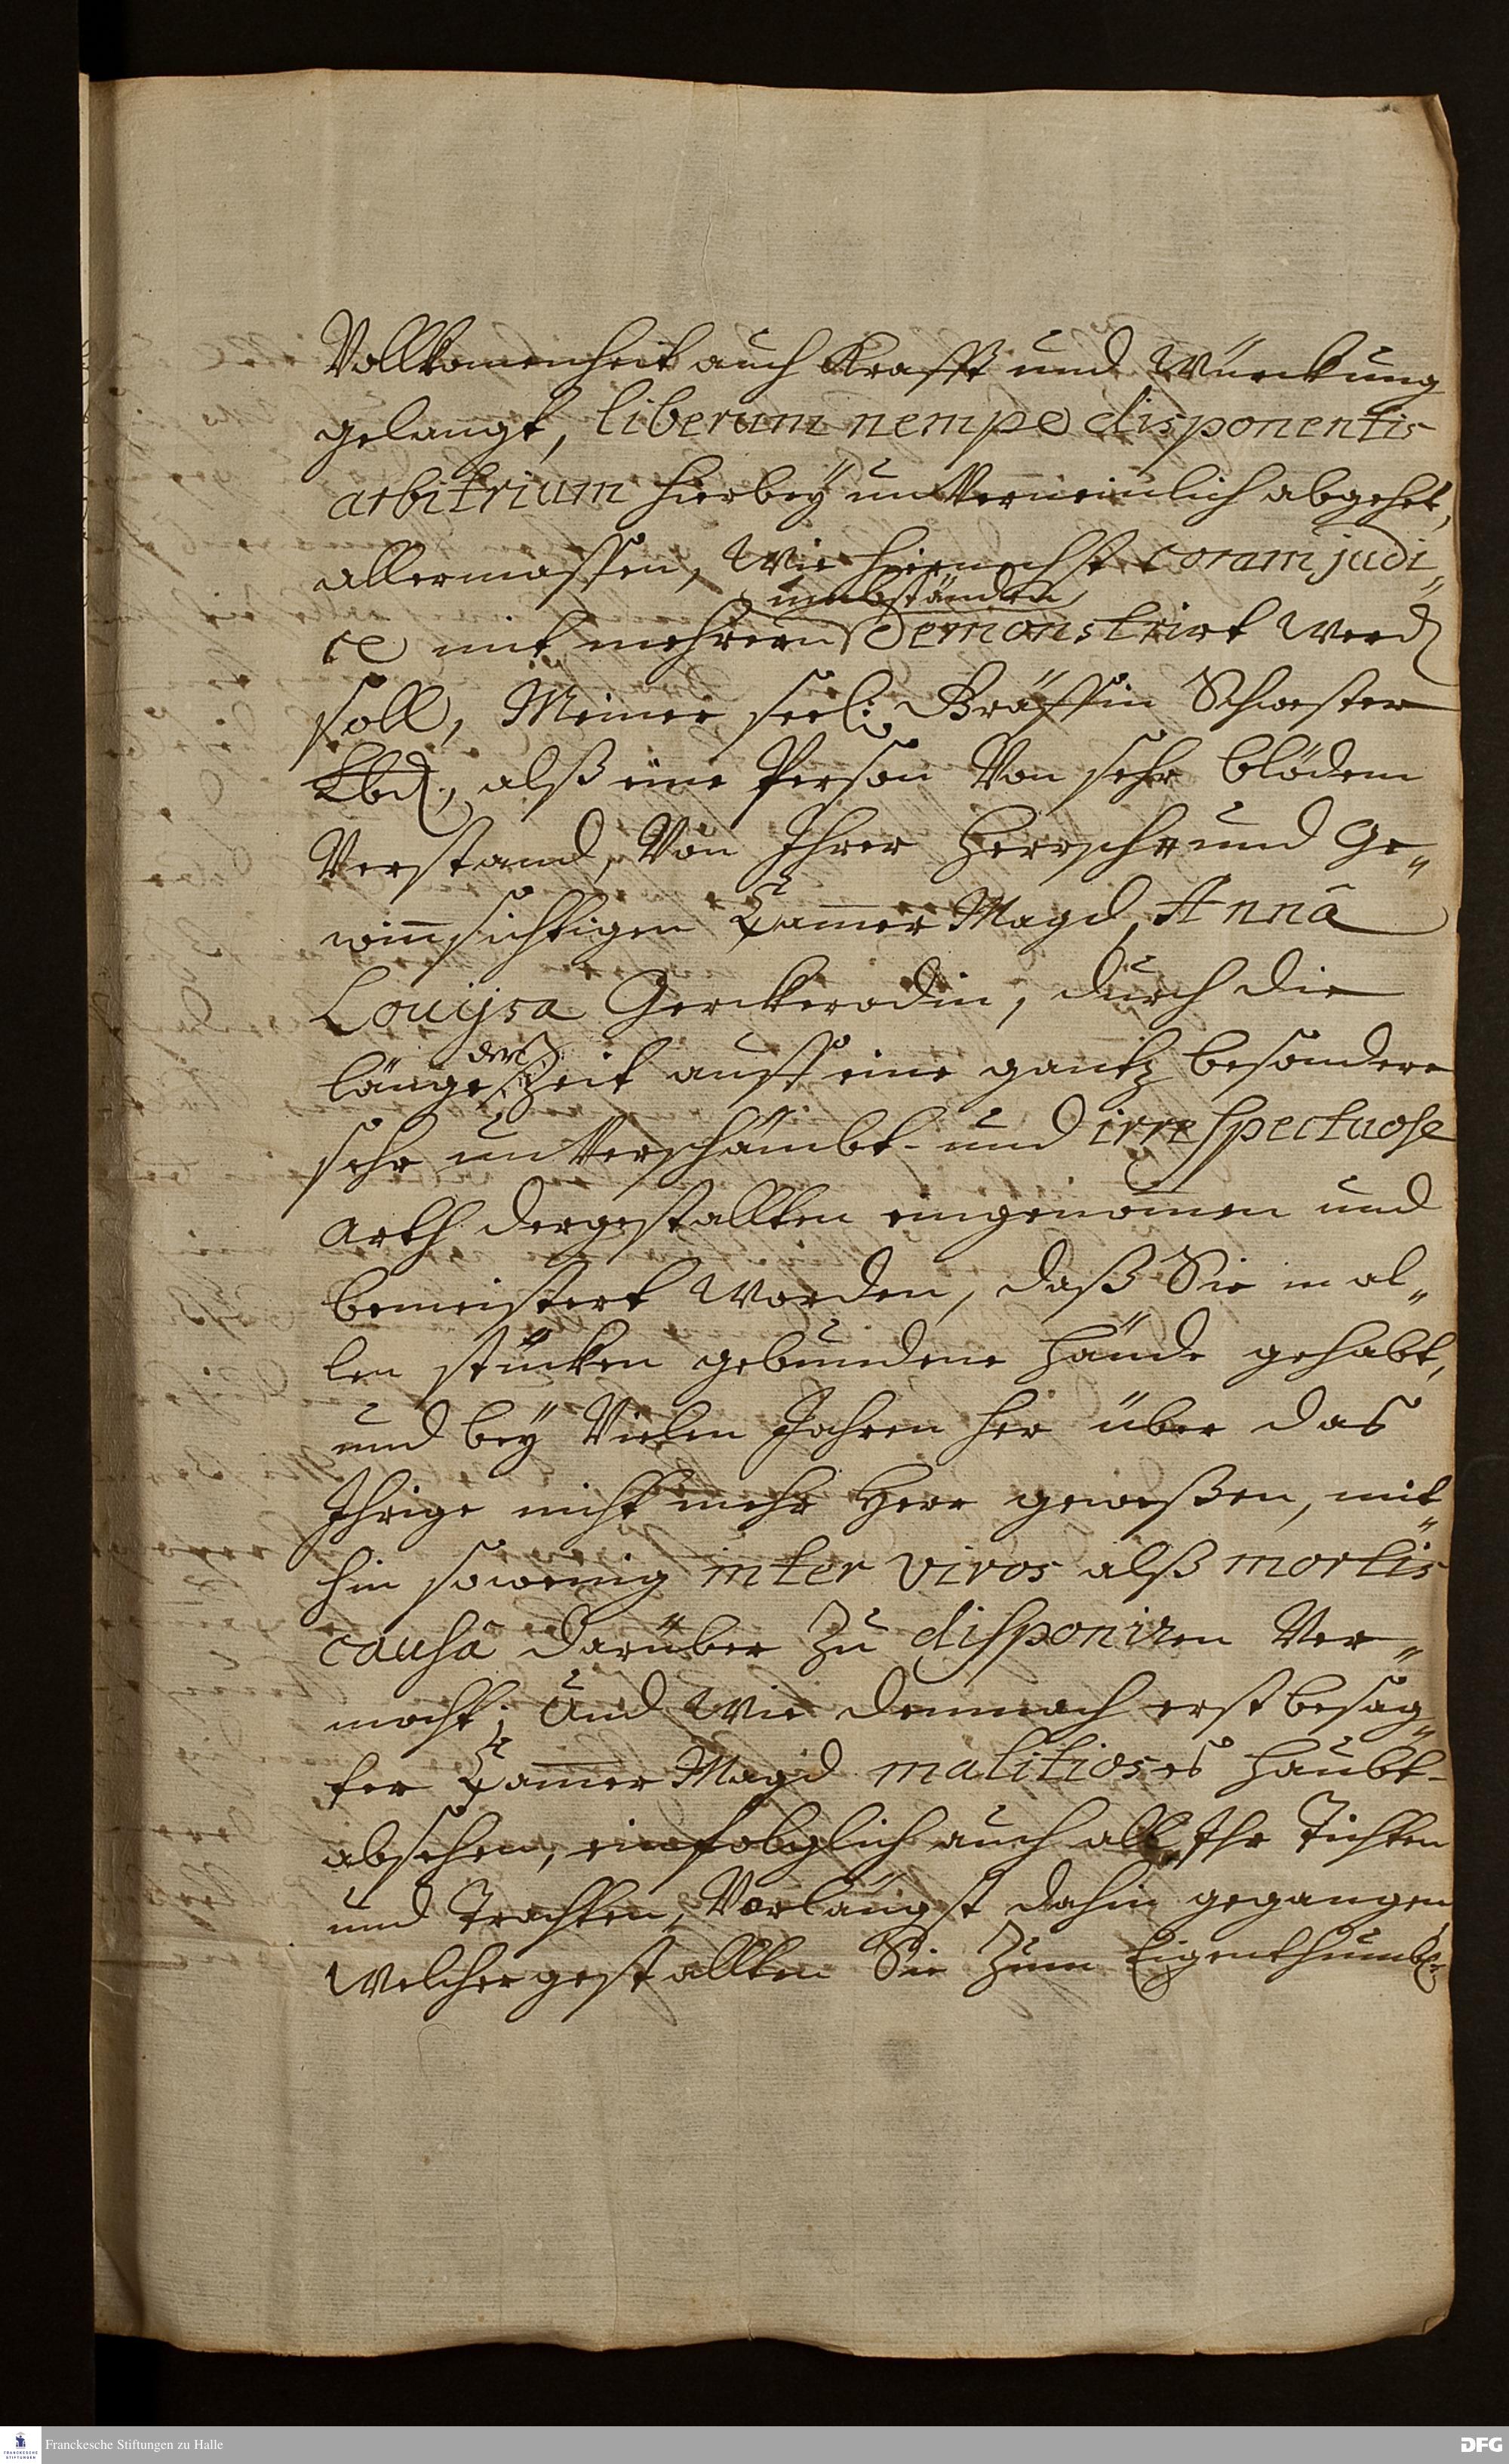 Vollkomenheit auch Krafft und Würckung
gelangt, liberum nempe disponentis
arbitrium hierbeÿ unVerneinlich abgehet,
allermassen, Wie hiernechst coram judi„
umbständen
ce mit mehrern demonstrirt Werd
soll, Meiner seel: Gräffin Schwester
Lbd., alß eine Person Von sehr blödem
Verstand, Von Ihrer Herrsch- und Ge„
winnsichtigen Cammer Magd, Annâ
Louijsa Gerckerodin, durch die
der
länge Zeit auff eine gantz besondere
sehr unVerschämbt- und irrespectuose
arth dergestallten eingenomen und
bemeistert Worden, daß Sie in al„
len stücken gebundene Hände gehabt,
und beÿ Vielen Jahren her über das
Ihrige nicht mehr Herr geweßen, mit„
hin sowenig inter viros alß mortis
causâ darüber Zu disponiren Ver„
mocht; Und Wie demnach erst besag„
ter Cammer Magd malitioses Haubt-
absehen, einfolglich auch all Ihr Tichten
und Trachten, Vorlängst dahin gegangen
Welchergestallten Sie Zum Eigenthumb
Franckesche Stiftungen zu Halle
FRANCKESCHE STIFTUNGEN
DFG